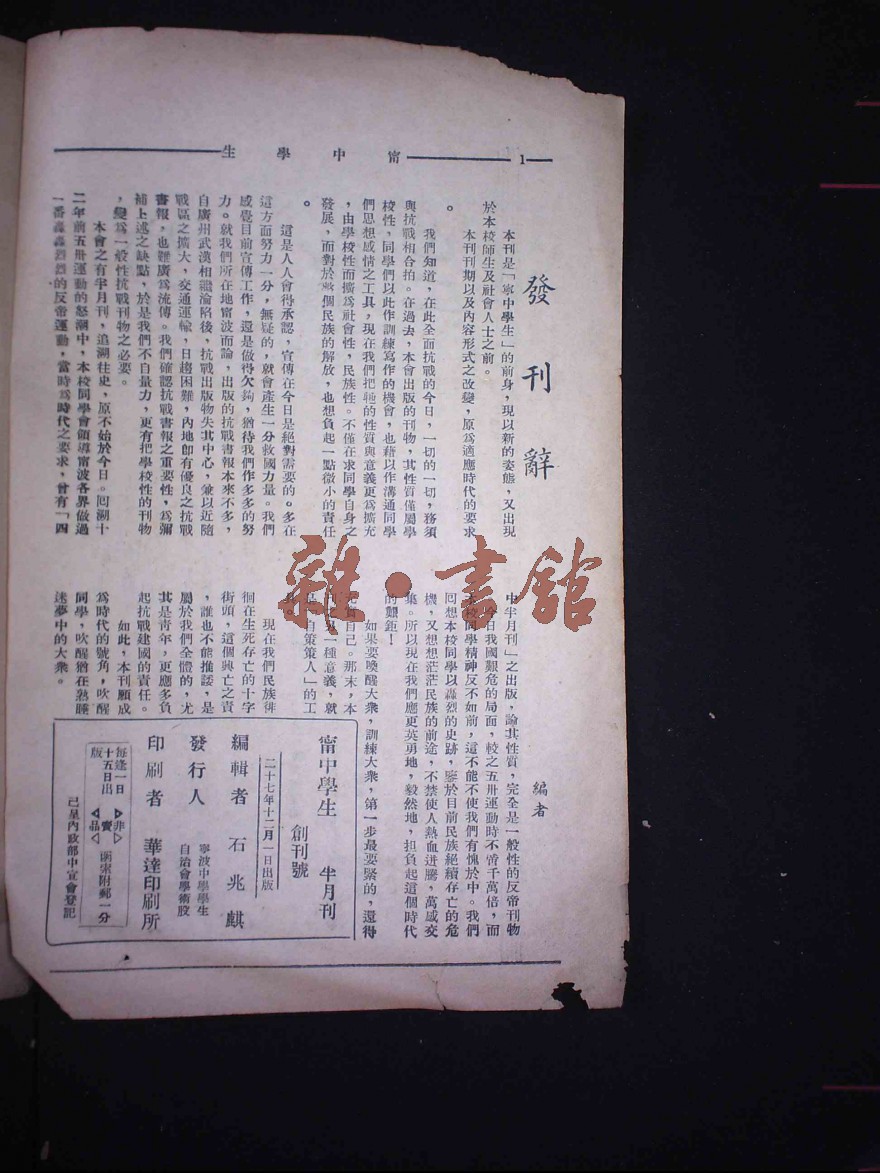 1
甯中學生
發刊辭
編者
本刊是「寧中學生」的前身,現以新的姿態,又出現
於本校師生及社會人士之前。
本刊刊期以及內容形式之改變,原爲適應時代的要求
。
我們知道,在此全面抗戰的今日,一切的一切,務須
與抗戰相合拍。在過去,本會出版的刊物,其性質僅屬學
校性,同學們以此作訓練寫作的機會,也藉以作溝通同學
們思想感情之工具,現在我們把牠的性質與意義更爲擴充
,由學校性而擴爲社會性,民族性。不僅在求同學自身之
發展,而對於整個民族的解放,也想負起一點微小的責任
。
這是人人會得承認,宣傳在今日是絕對需要的。多在
這方面努力一分,無疑的,就會產生一分救國力量。我們
感覺目前宣傳工作,還是做得欠夠,猶待我們作多多的努
力。就我們所在地甯波而論,出版的抗戰書報本來不多,
自廣州武漢相繼淪陷後,抗戰出版物失其中心,兼以近隨
戰區之擴大,交通運輸,日趨困難,內地卽有優良之抗戰
書報,也難廣爲流傳。我們確認抗戰書報之重要性,爲彌
補上述之缺點,於是我們不自量力,更有把學校性的刊物
,變爲一般性抗戰刊物之必要。
本會之有半月刊,追溯往史,原不始於今日。回溯十
二年前五卅運動的怒潮中,本校同學會領導甯波各界做過
一番轟轟烈烈的反帝運動,當時爲時代之要求,曾有「四
中半月刊」之出版,論其性質,完全是一般性的反帝刊物
今日我國艱危的局面,較之五卅運動時不啻千萬倍,而
本校同學精神反不如前,這不能不使我們有愧於中。我們
回想本校同學以轟烈的史跡,鑒於目前民族絕續存亡的危
機,又想想茫茫民族的前途,不禁使人熱血迸騰,萬感交
集。所以現在我們應更英勇地,毅然地,担負起這個時代
的艱鉅!
如果要喚醒大衆,訓練大衆,第一步最要緊的,還得
充實自己。那末,本
另一種意義,就
是「自策策人」的工
現在我們民族徘
徊在生死存亡的十字
街頭,這個興亡之責
,誰也不能推諉,是
屬於我們全體的,尤
其是青年,更應多負
起抗戰建國的責任。
如此,本刊願成
爲時代的號角,吹醒
同學,吹醒猶在熟睡
迷夢中的大衆。
甯中學生 半月刊
創刊號
二十七年十二月一日出版
編輯者 石兆麒
發行人 寧波中學學生自治會學術股
印刷者 華達印刷所
每逢一日十五日出版
非賣品
函索附郵一分
已呈內政部中宣會登記
雜·書館